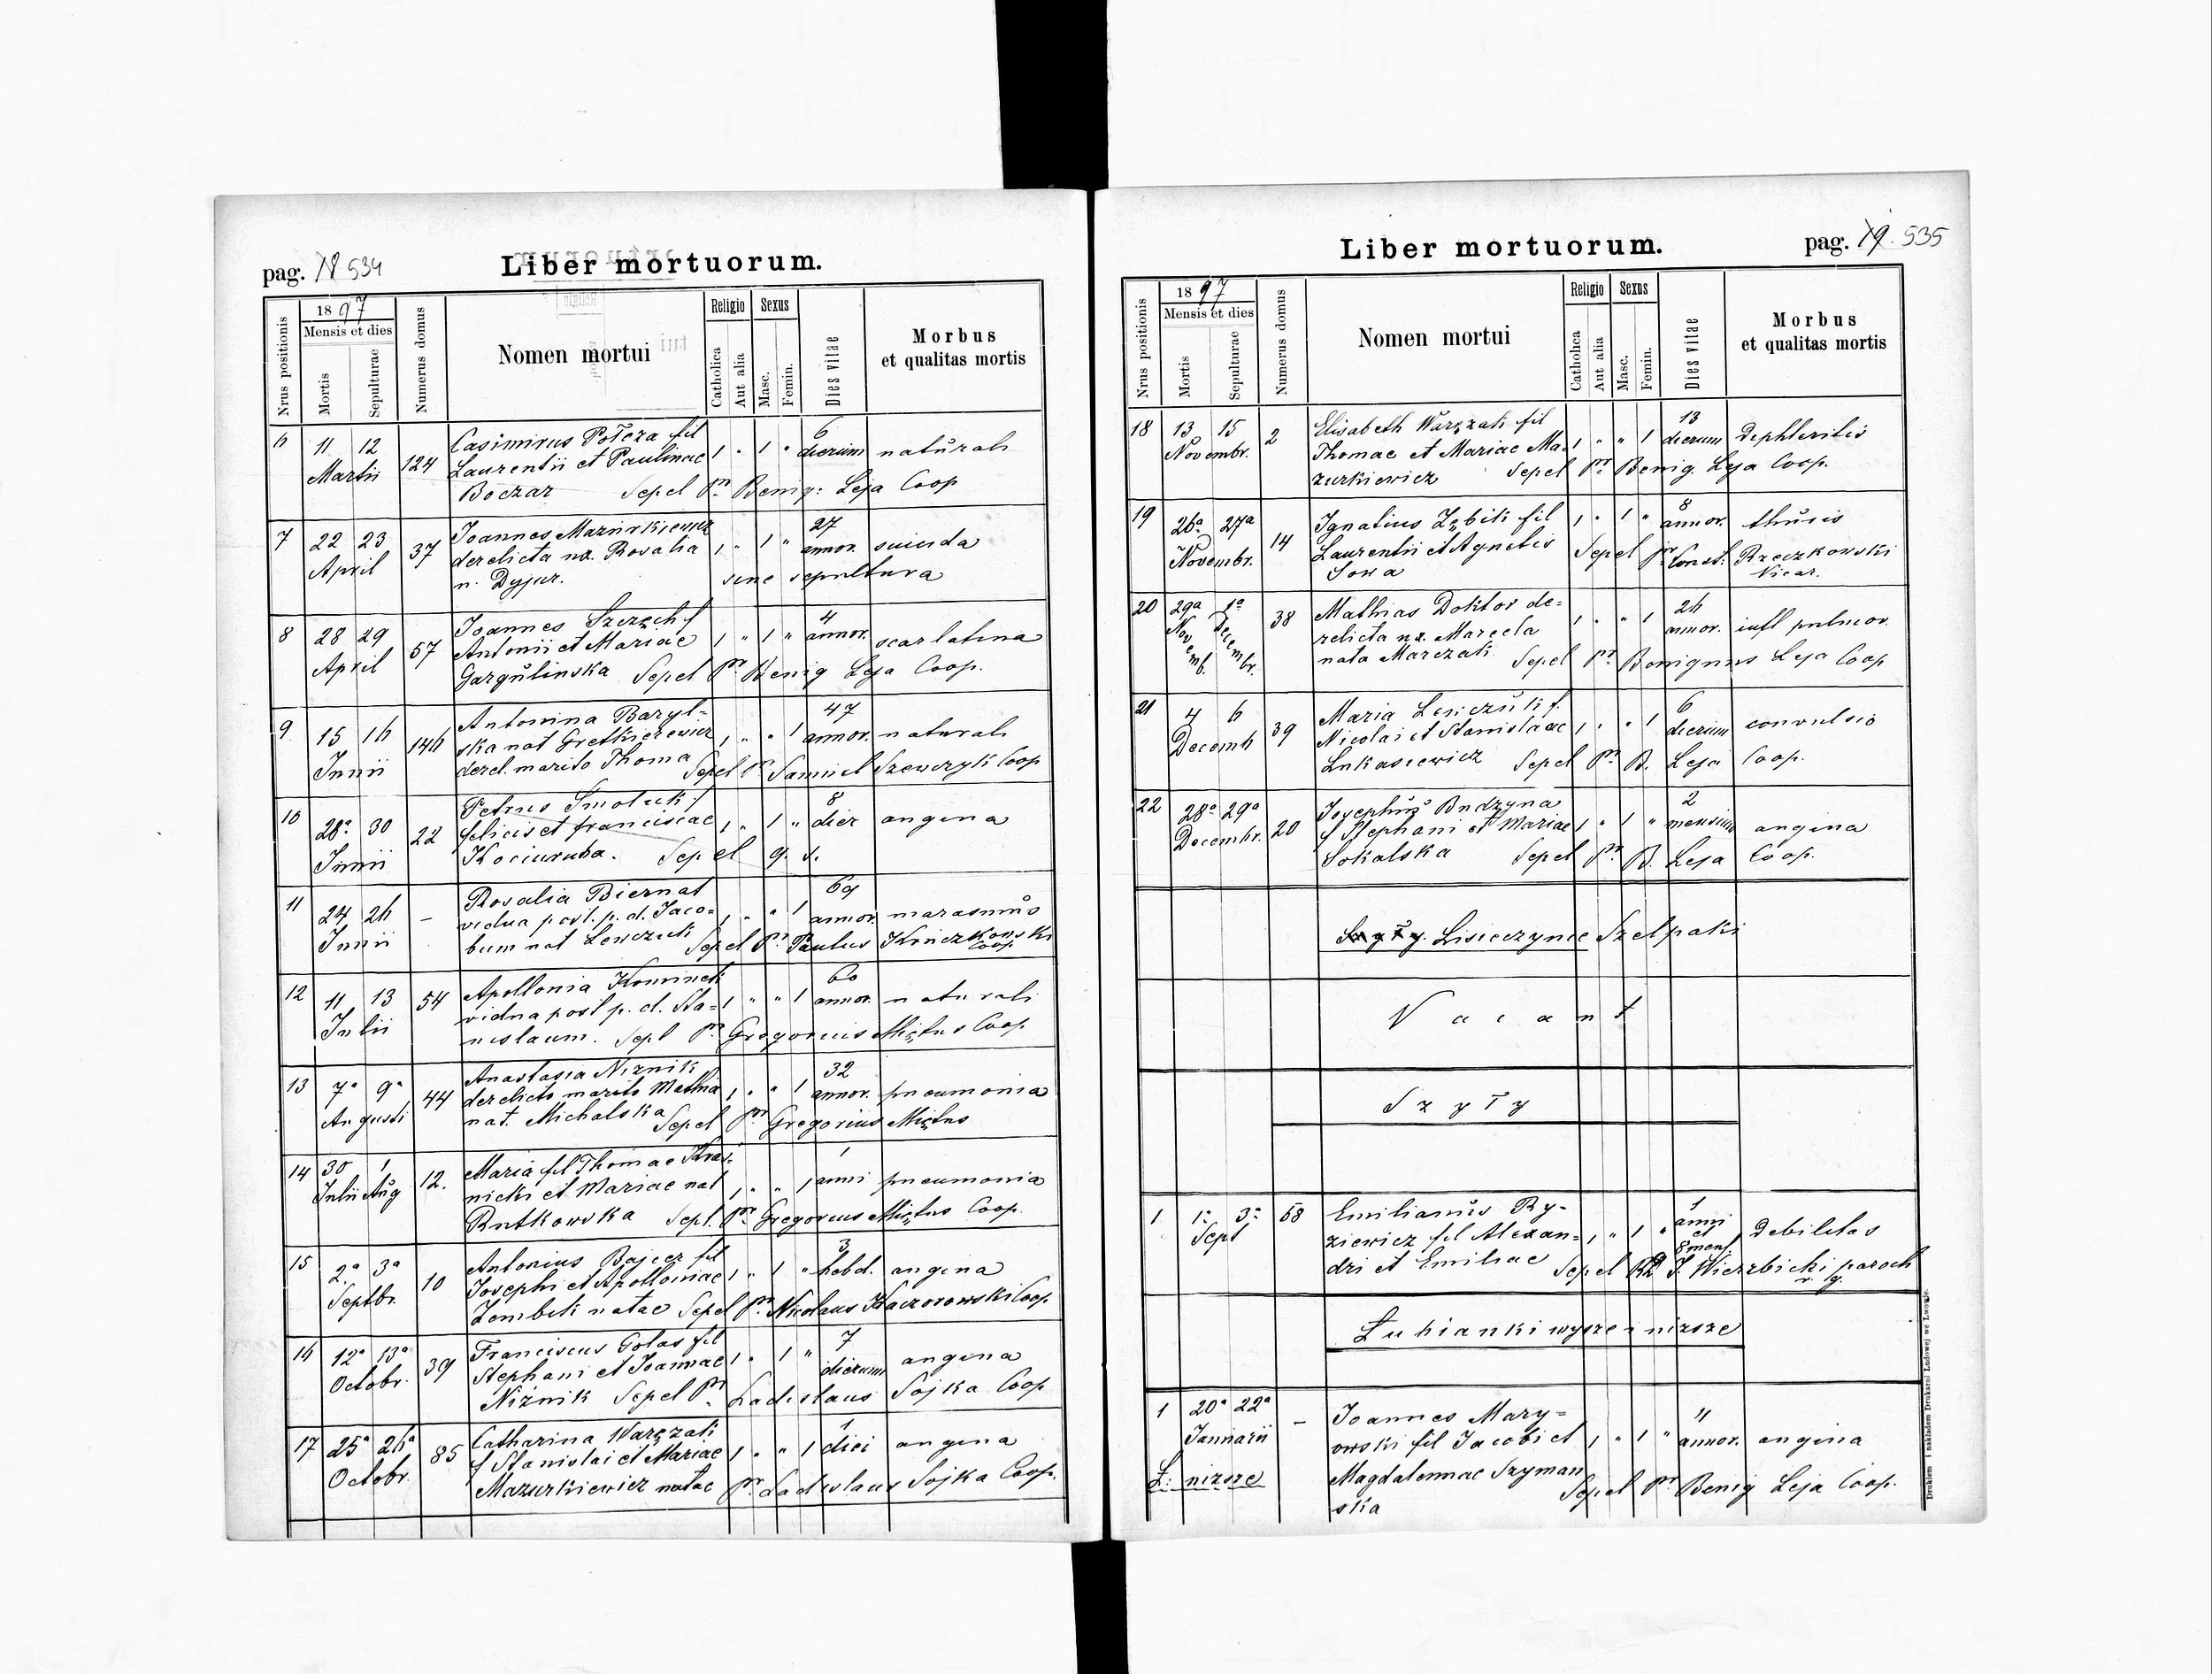 pag. 18 534
Liber mortuorum.
Nrus positionis
1897
Mensis et dies
Mortis
Sepulturae
Numerus domus
Nomen mortui
Religio
Catholica
Aut alia
Sexus
Masc.
Femin.
Dies vitae
Morbus
et qualitas mortis
6 11 12 Martii 124 Casimirus Połcza fil 6
Laurentii et Paulinae 1 " 1 " dierum naturali
Boczar Sepel Pr. Benig: Leja Coop
7 22 23 April 37 Joannes Mazurkiewicz 27
derelicta ux. Rosalia 1 " 1 " annor. suicida
n. Dyjur. sine sepultura
8 28 29 April 57 Joannes Szerzch f 4
Antonii et Mariae 1 " 1 " annor. scarlatina
Gargulinska Sepel Pr. Benig Leja Coop.
9 15 16 Junii 146 Antonina Baryl= 47
ska nat Gretkierewicz 1 " " 1 annor. naturali
derel. marito Thoma Sepel Pr. Samuel Szewczyk Coop
10 28a 30 Junii 22 Petrus Smoluk f 8
felicis et franciscae 1 " 1 " dier angina
Kociuruba. Sepel q. s.
11 24 26 Junii — Rosalia Biernat 69
vidua post. p. d. Jaco= 1 " " 1 annor. marasmus
bum nat Lewczuk Sepel Pr. Paulus Kruczkowski
Coop
12 11 13 Julii 54 Apollonia Kominek 60
vidua post p. d. Sta= 1 " " 1 annor. naturali
nislaum. Sepl Pr. Gregorius Miętus Coop
13 7a 9a Augusti 44 Anastasia Niznik 32
derelicto marito Mathia 1 " " 1 annor. pneumonia
nat. Michalska Sepel Pr. Gregorius Miętus
14 30 Julii 1 Aug 12. Maria fil Thomae Kras= 1
nicki et Mariae nat 1 " " 1 anni pneumonia
Rutkowska Sepl. Pr. Gregorius Miętus Coop.
15 2a 3a Septbr. 10 Antonius Bajecz fil 3
Josephi et Apolloniae 1 " 1 " hebd. angina
Zembik natae Sepel Pr. Nicolaus Kaczorowski Coop.
16 12a 13a Octobr. 39 Franciscus Golas fil 7
Stephani et Joannae 1 " 1 " dierum angina
Niźnik Sepel Pr. Ladislaus Sojka Coop
17 25a 26a Octobr. 85 Catharina Warczak 1
f Stanislai et Mariae 1 " " 1 diei angina
Mazurkiewicz natae Pr. Ladislaus Sojka Coop.
pag. 19. 535
Liber mortuorum.
Nrus positionis
1897
Mensis et dies
Mortis
Sepulturae
Numerus domus
Nomen mortui
Religio
Catholica
Aut alia
Sexus
Masc.
Femin.
Dies vitae
Morbus
et qualitas mortis
18 13 15 Novembr. 2 Elisabeth Warczak fil 13
Thomae et Mariae Ma= 1 " " 1 dierum Dephteritis
zurkiewicz Sepel Pr. Benig. Leja Coop.
19 26a 27a Novembr. 14 Ignatius Zębik fil 8
Laurentii et Agnetis 1 " 1 " annor. thusis
Sowa Sepel Pr. Const: Breczkowski
Vicar.
20 29a Novemb. 1a Decembr. 38 Mathias Doktor de= 26
relicta ux. Marcela 1 " " 1 annor. infl pulmor.
nata Marczak Sepel Pr. Benignus Leja Coop
21 4 6 Decemb 39 Maria Lewczuk f. 6
Nicolai et Stanislaae 1 " " 1 dierum convulsio
Lukasiewicz Sepel Pr. B. Leja Coop.
22 28a 29a Decembr. 20 Josephus Budzyna 2
f Stephani et Mariae 1 " 1 " mensium angina
Sokalska Sepel Pr. B. Leja Coop.
Szyły. Lisieczynce Szelpaki
Vacant
Szyły
1 1a 3a Sept 68 Emilianus Ry- 1 anni
ziewicz fil Alexan= 1 " 1 " et 8 mens. Debilitas
dri et Emiliae Sepel J. Wierzbicki paroch
r. g.
Łubianki wyższe i nizsze
1 20a 22a Januarii — Joannes Mary= 11
owski fil Jacobi et 1 " 1 " annor. angina
Ł: nizsze Magdalennae Szyman
ska Sepel Pr. Benig Leja Coop.
Drukiem i nakładem Drukarni Ludowej we Lwowie.